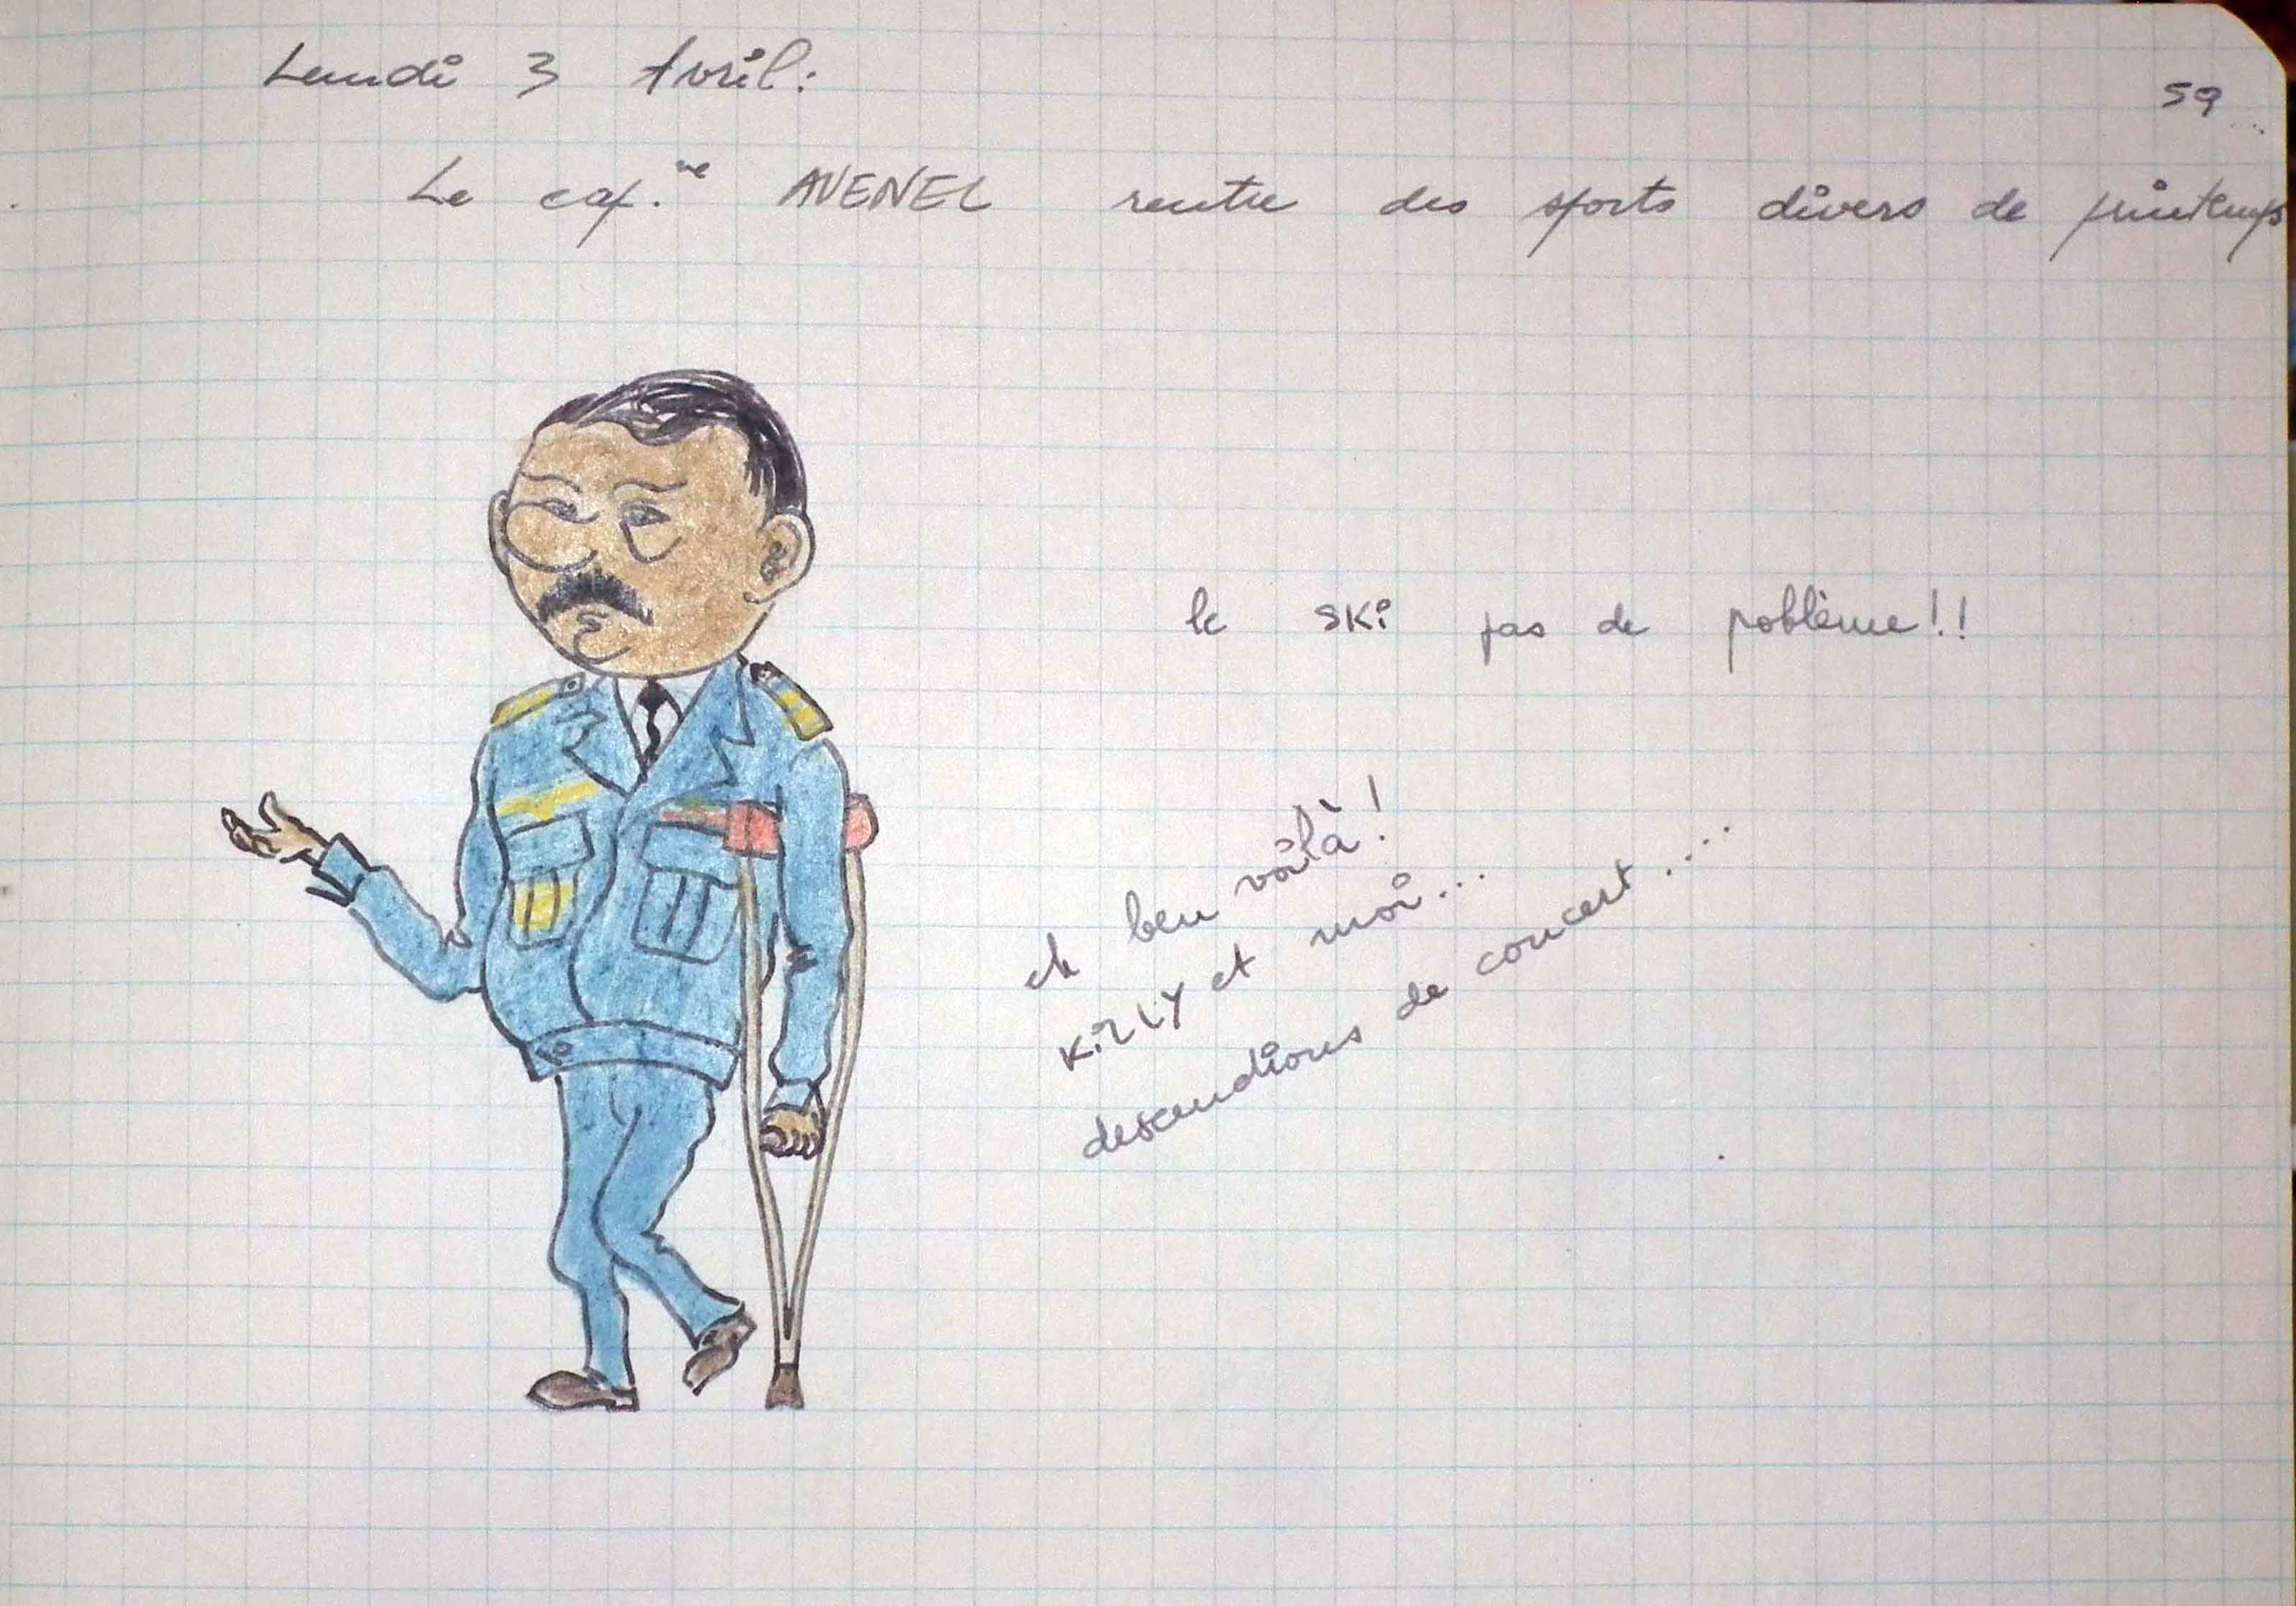 Lundi 3 Avril:
59
Le cap.ne AVENEL rentre des sports divers de printemps
le SKi pas de poblème!!
eh ben voilà!
KiLLY et moi...
descendions de concert....